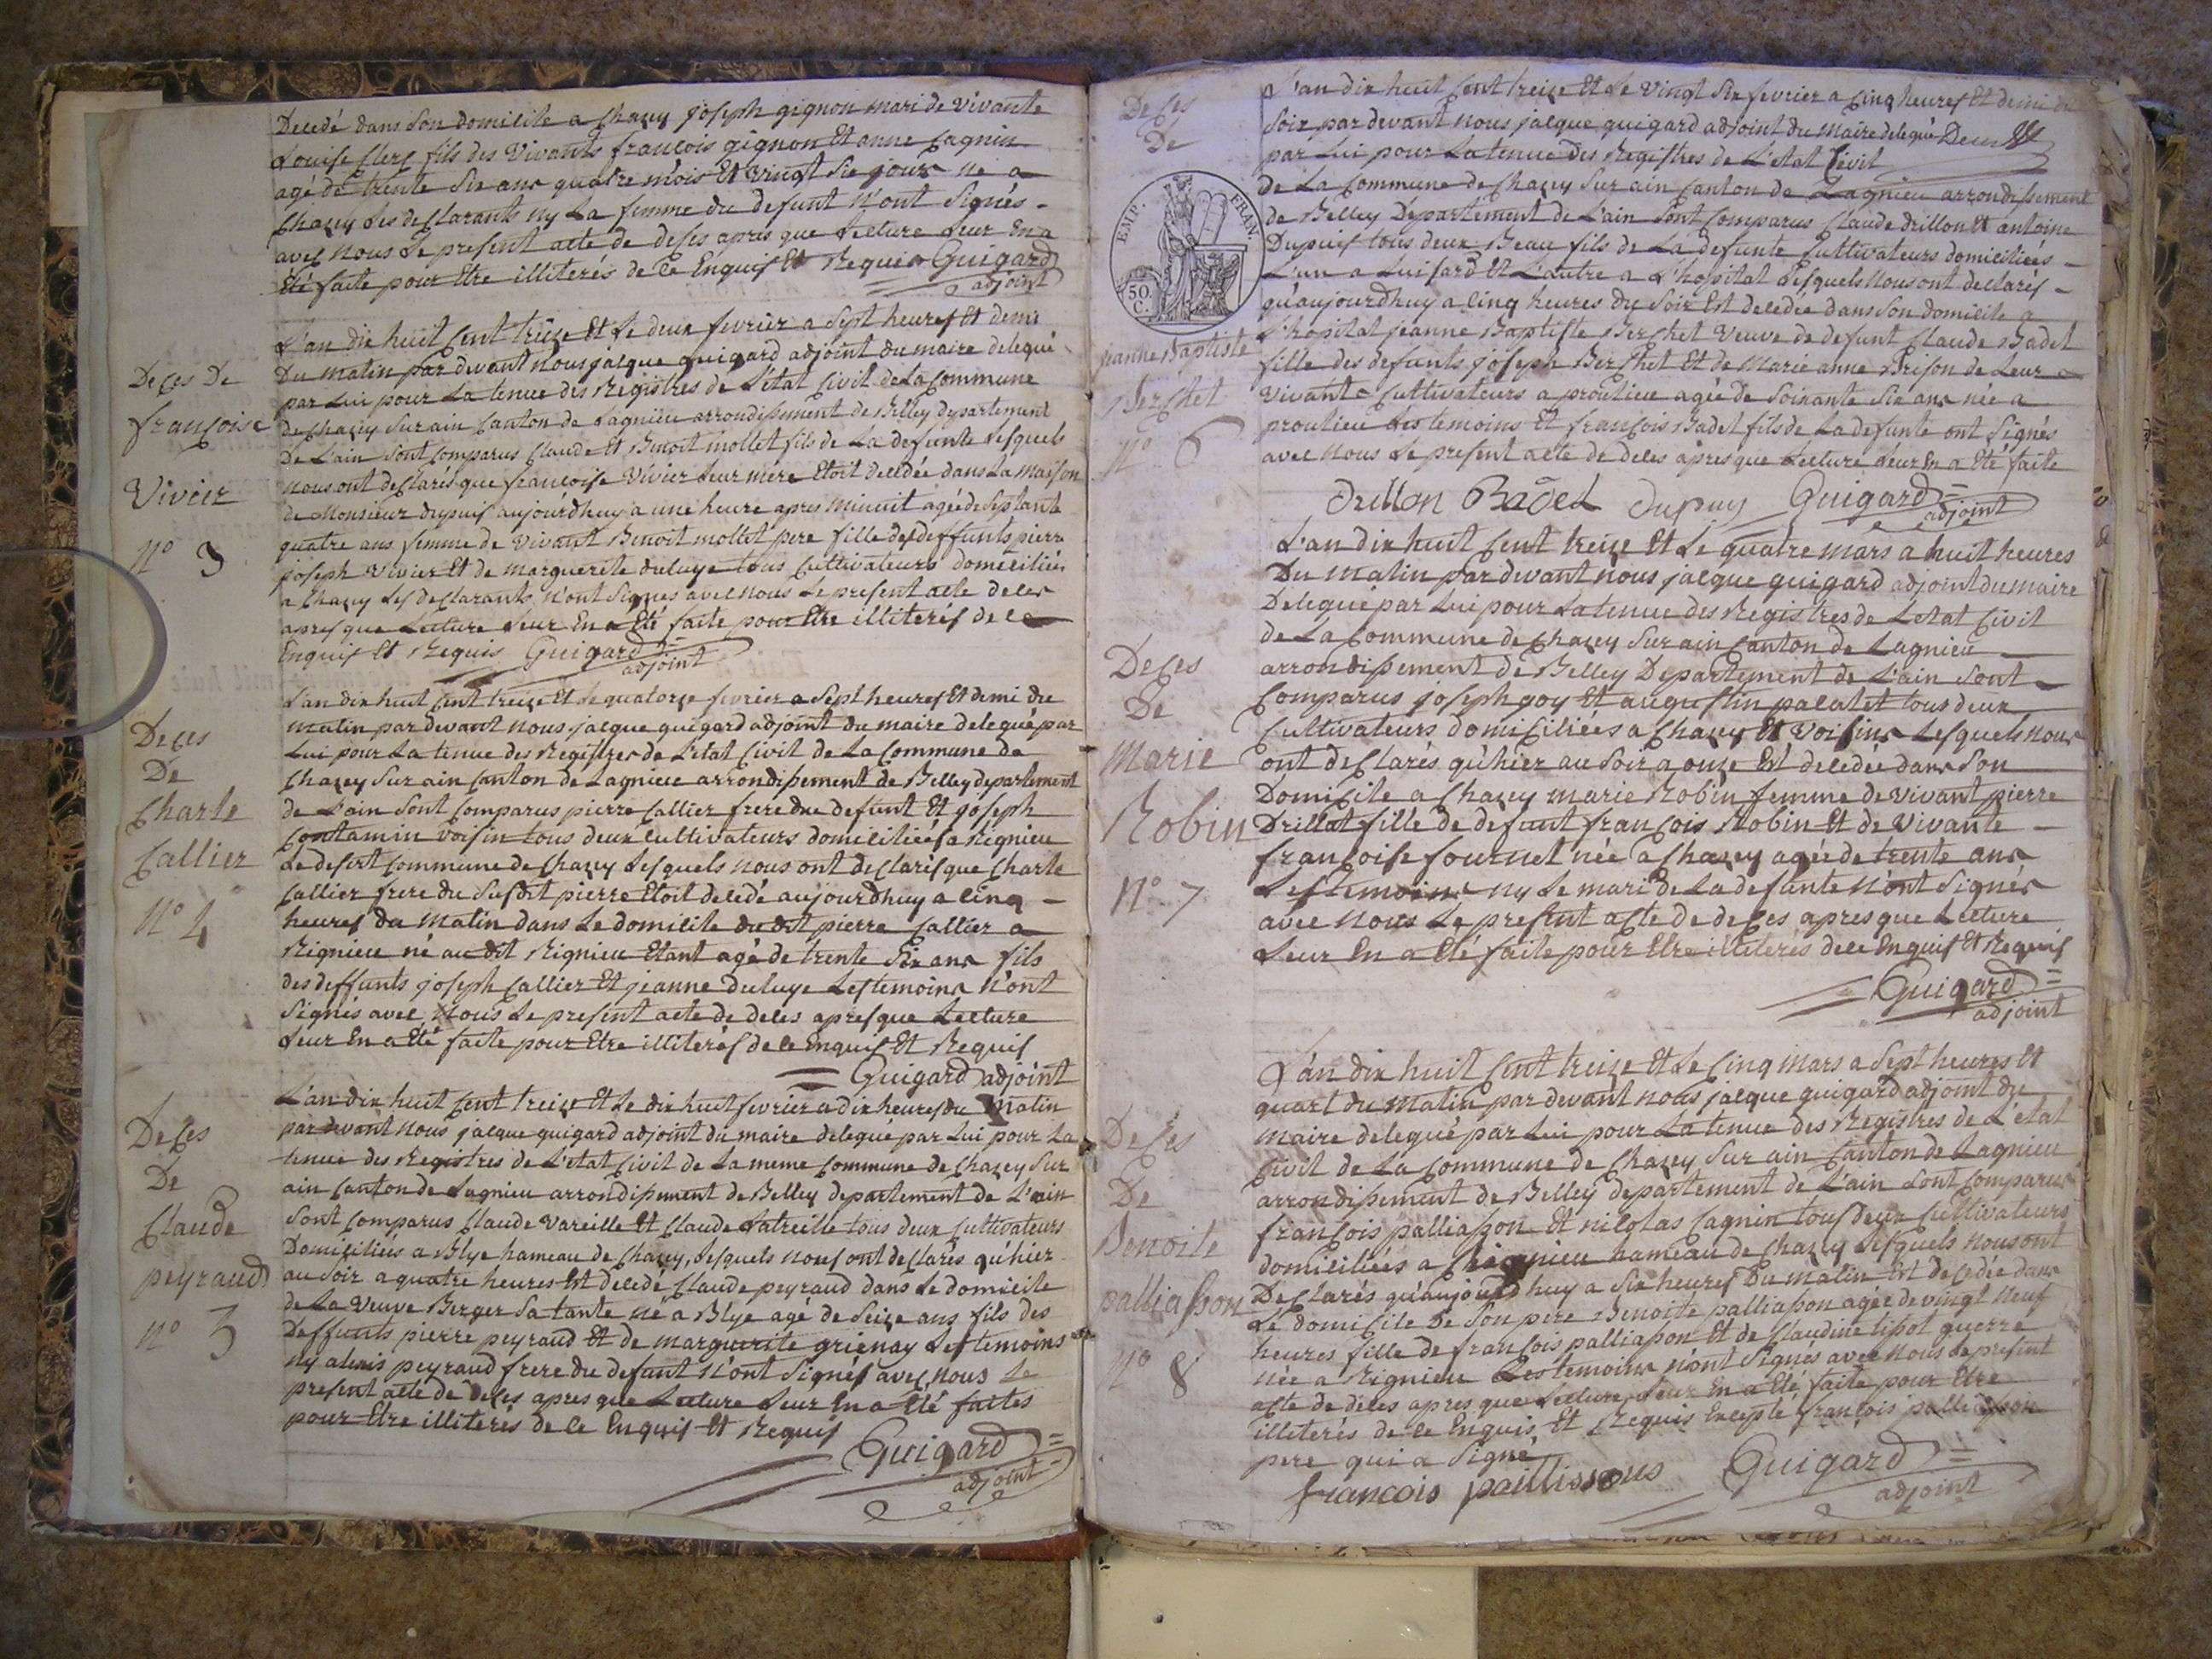 Decedé dans son domicile a Chazey joseph gignon mari de vivante
Louise Clerc fils des vivants francois gignon Et anne Cagnin
agé de trente six ans quatre mois Et vingt six jours né a
Chazey Les declarants ny La femme du defunt n'ont signés
avec nous Le present acte de deces apres que Lecture Leur En a
Eté faite pour Etre illiterés de ce Enquis Et Requis Guigard
adjoint
Deces De
françoise
Vivier
N° 3
L'an dix huit Cent treize Et Le deux fevrier a sept heures Et demi
Du matin par devant nous jacque guigard adjoint du maire delegué
par Lui pour La tenue des Registres de L'état Civil de La Commune
de Chazey sur ain Canton de Lagnieu arrondissement de Belley departement
De L'ain sont Comparus Claude Et Benoit mollet fils de La defunte Lesquels
nous ont declarés que francoise Vivier Leur mere Etoit decedée dans La maison
de Monsieur dupuis aujourdhuy a une heure apres minuit agée de septante
quatre ans femme de vivant Benoit mollet pere fille des deffunts pierre
joseph vivier Et de marguerite duluye tous Cultivateurs domiciliés
a Chazey Les declarants n'ont signes avec nous Le present acte deces
apres que Lecture Leur En a Eté faite pour Etre illiterés de ce
Enquis Et Requis Guigard
adjoint
Deces
De
Charle
Callier
N° 4
L'an dix huit Cent treize Et Le quatorze fevrier a sept heures Et demi du
matin par devant nous jacque guigard adjoint du maire delegué par
Lui pour La tenue des Registres de L'état Civil de La Commune de
Chazey sur ain Canton de Lagnieu arrondissement de Belley departement
de L'ain sont Comparus pierre Callier frere du defunt Et joseph
Contamin voisin tous deux Cultivateurs domiciliés a Rignieu
Le desert Commune de Chazey Lesquels nous ont declarés que Charle
Callier frere du susdit pierre Etoit decedé aujourdhuy a cinq
heures du matin dans Le domicile du dit pierre Callier a
Rignieu né au dit Rignieu Etant agé de trente six ans fils
des deffunts joseph Callier Et jeanne duluye Les temoins n'ont
signés avec nous Le present acte de deces apres que Lecture
Leur En a Eté faite pour Etre illiterés de ce Enquis Et Requis
Guigard adjoint
Deces
De
Claude
peyraud
n° 5
L'an dix huit Cent treize Et Le dix huit fevrier a dix heures du matin
par devant nous jacque guigard adjoint du maire delegué par Lui pour La
tenue des Registres de L'état Civil de La meme Commune de Chazey sur
ain Canton de Lagnieu arrondissement de Belley departement de L'ain
sont Comparus Claude vareille Et Claude Latreille tous deux Cultivateurs
Domiciliés a Blye hameau de Chazey, Lesquels nous ont declarés qu'hier
au soir a quatre heures Est decedé Claude peyraud dans Le domicile
de La Veuve Berger sa tante né a Blye agé de seize ans fils des
Deffunts pierre peyraud Et de marguerite grienay Les temoins
ny alexis peyraud frere du defunt n'ont signés avec nous Le
present acte de deces apres que Lecture Leur En a Eté faites
pour Etre illiterés de ce Enquis Et Requis
Guigard
adjoint
Deces
De
EMP. FRAN.
50. C.
jeanne Baptiste
Berchet
N° 6
L'an dix huit Cent treize Et Le vingt six fevrier a cinq heures Et demi du
soir par devant nous jacque guigard adjoint du maire delegué
par Lui pour La tenue des Registres de L'etat Civil
de La Commune de Chazey sur ain Canton de Lagnieu arrondissement
de Belley Departement de L'ain sont Comparus Claude drillon Et antoine
Dupuis tous deux Beau fils de La defunte Cultivateurs domiciliés
L'un a Luisard Et L'autre a L'hopital Lesquels nous ont declarés
qu'aujourdhuy a cinq heures du soir Est decedée dans son domicile a
L'hopital jeanne Baptiste Berchet veuve de defunt Claude Badel
fille des defunts joseph Berchet Et de Marie anne Brison de Leur
vivant Cultivateurs a proulieu agée de soixante six ans née a
proulieu Les temoins Et francois Badel fils de La defunte ont signés
avec nous Le present acte de deces apres que Lecture Leur En a Eté faite
Drillon Badel Dupuy Guigard
adjoint
Deces
De
Marie
Robin
N° 7
L'an dix huit Cent treize Et Le quatre mars a huit heures
Du matin par devant nous jacque guigard adjoint du maire
Delegué par Lui pour La tenue des Registres de L'etat Civil
de La Commune de Chazey sur ain Canton de Lagnieu
arrondissement de Belley Departement de L'ain sont
Comparus joseph goy Et augustin palatet tous deux
Cultivateurs domiciliées a Chazey Et voisins Lesquels nous
ont declarés qu'hier au soir a onze Est decedée dans son
Domicile a Chazey marie Robin femme de vivant pierre
Drillat fille de defunt francois Robin Et de vivante
francoise fournet née a Chazey agée de trente ans
Les temoins ny Le mari de La defunte n'ont signés
avec nous Le present acte de deces apres que Lecture
Leur En a Eté faite pour Etre illiterés de ce Enquis Et Requis
Guigard
adjoint
Deces
De
Benoite
palliasson
N° 8
L'an dix huit Cent treize Et Le cinq mars a sept heures Et
quart du matin par devant nous jacque guigard adjoint du
maire delegué par Lui pour La tenue des Registres de L'etat
Civil de La Commune de Chazey sur ain Canton de Lagnieu
arrondissement de Belley departement de L'ain sont Comparus
francois palliasson Et nicolas Cagnin tous deux Cultivateurs
domiciliées a Rignieu hameau de Chazey Lesquels nous ont
Declarés qu'aujourdhuy a six heures du matin Est decedée dans
Le domicile de son pere Benoite palliasson agée de vingt neuf
heures fille de francois palliasson Et de Claudine tissot guerre
née a Rignieu Les temoins n'ont signés avec nous Le present
acte de deces apres que Lecture Leur En a Eté faite pour Etre
illiterés de ce Enquis Et Requis Excepté francois palliasson
pere qui a signé
francois paillissous Guigard
adjoint